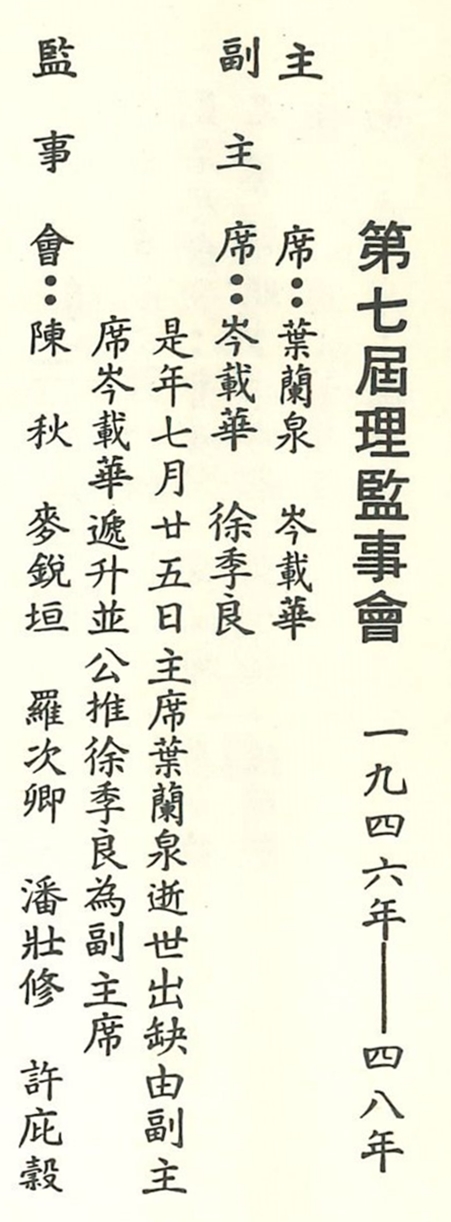 第七屆理監事會 一九四六年——四八年
主席：葉蘭泉 岑載華
副主席：岑載華 徐季良
是年七月廿五日主席葉蘭泉逝世出缺由副主
席岑載華遞升並公推徐季良為副主席
監事會：陳秋 麥銳垣 羅次卿 潘壯修 許庇穀